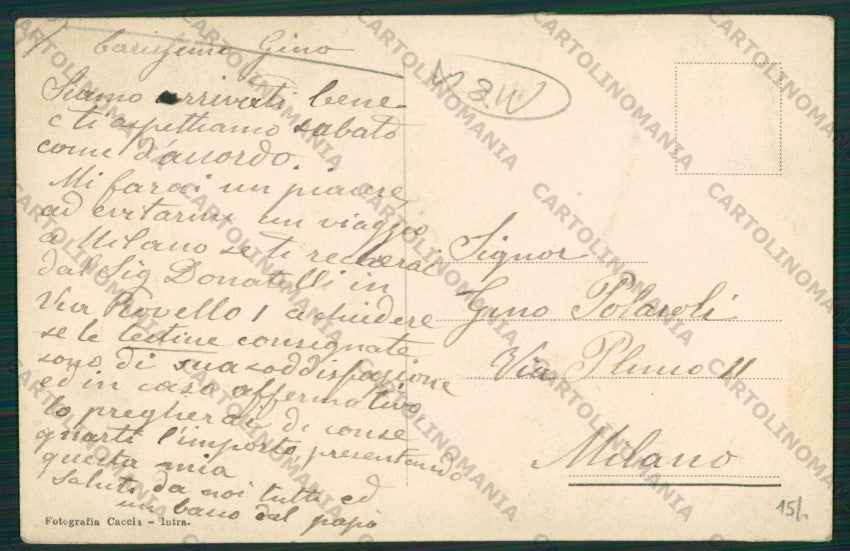 Carissimo Gino
Siamo arrivati bene
e ti aspettiamo sabato
come d'accordo.
Mi farai un piacere,
ad evitarmi un viaggio
a Milano se ti recherai
dal Sig Donatelli in
Via Rovello 1 a chiedere
se le testine consegnate
sono di sua soddisfazione
ed in caso affermativo,
lo pregherai di conse
gnarti l'importo, presentando
questa mia
Saluti da noi tutti ed
un bacio dal papà
Fotografia Caccia - Intra.
Signor
Gino Polaroli
Via Plinio 11
Milano
15/.
CARTOLINOMANIA